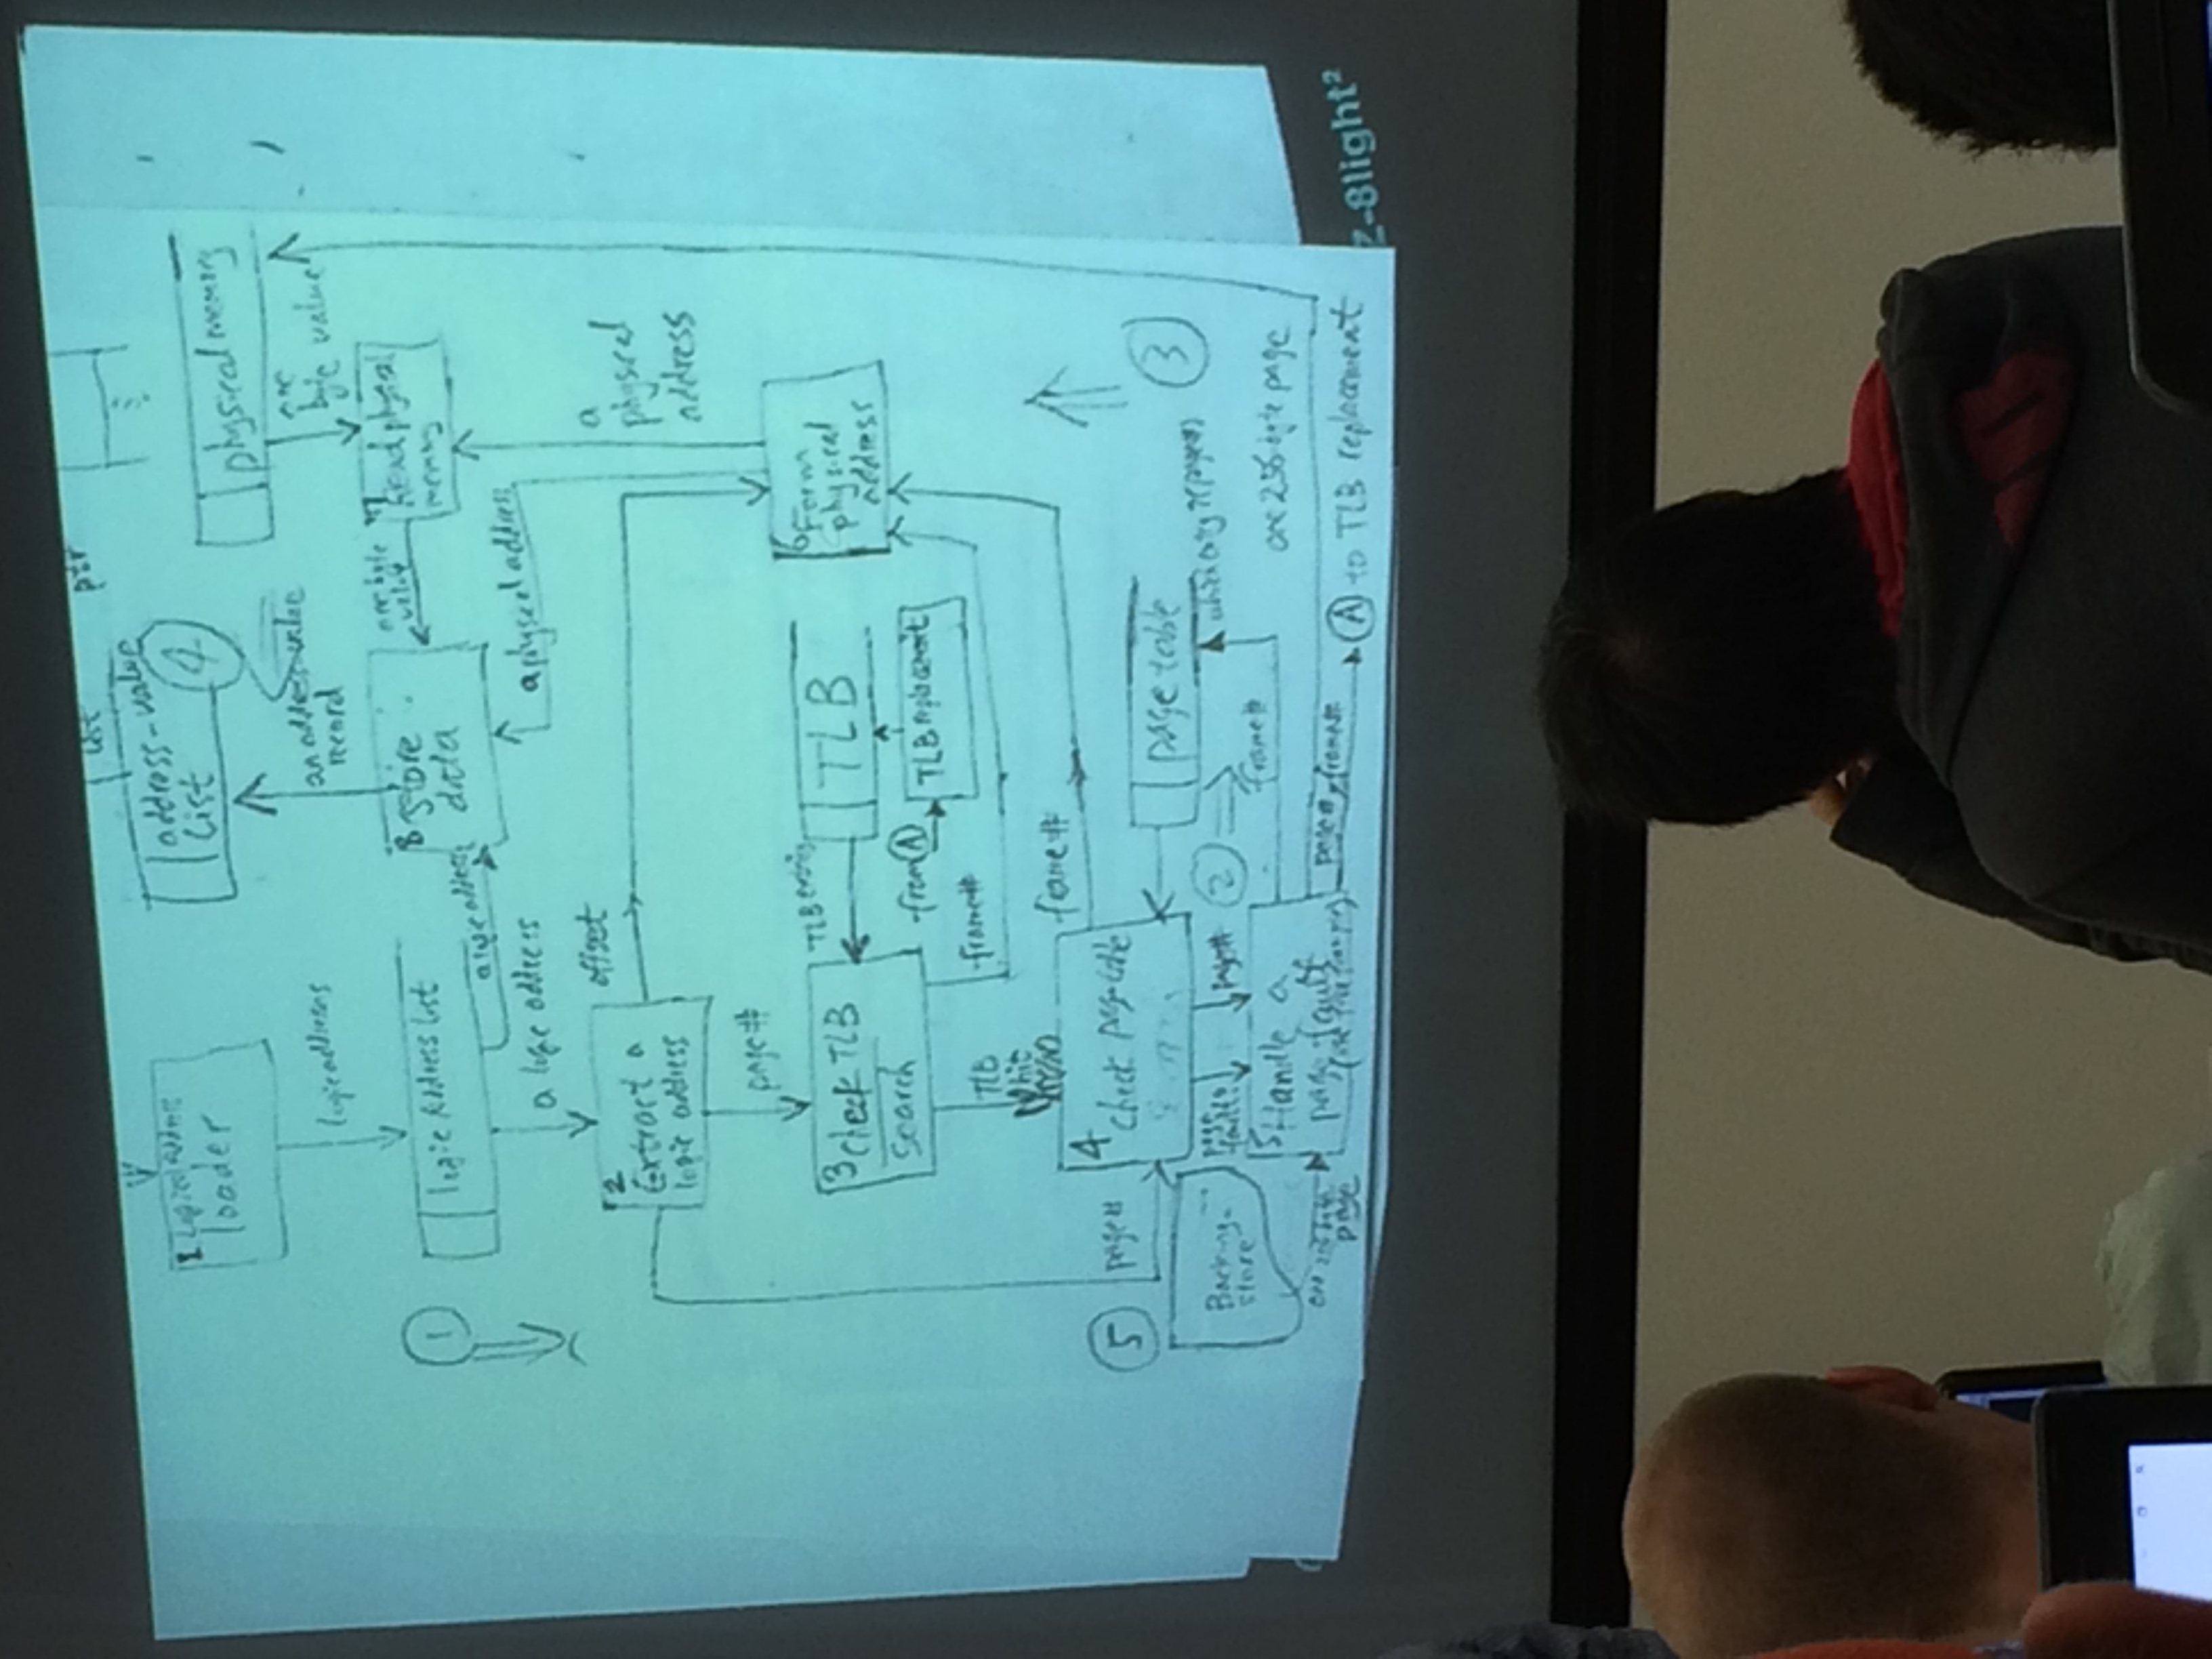 list
ptr
1 Logical Address
loader
address-value
list
4
physical memory
logic addresses
an address-value
record
one
byte value
1
logic Address list
a logic address
8 store
data
one byte
value
7
Read physical
memory
a logic address
a physical address
2
Extract a
logic address
offset
a
physical
address
page#
3 check TLB
search
TLB entries
TLB
6 Form
physical
address
from A
TLB replacement
frame#
TLB
hit
frame#
4
check page table
page#
5
page table
3
Backing-
store
page
fault
page#
2
frame#
which entry
one 256-byte page
5 Handle a
page fault
page
page#, frame#
A to TLB replacement
Z-8light²